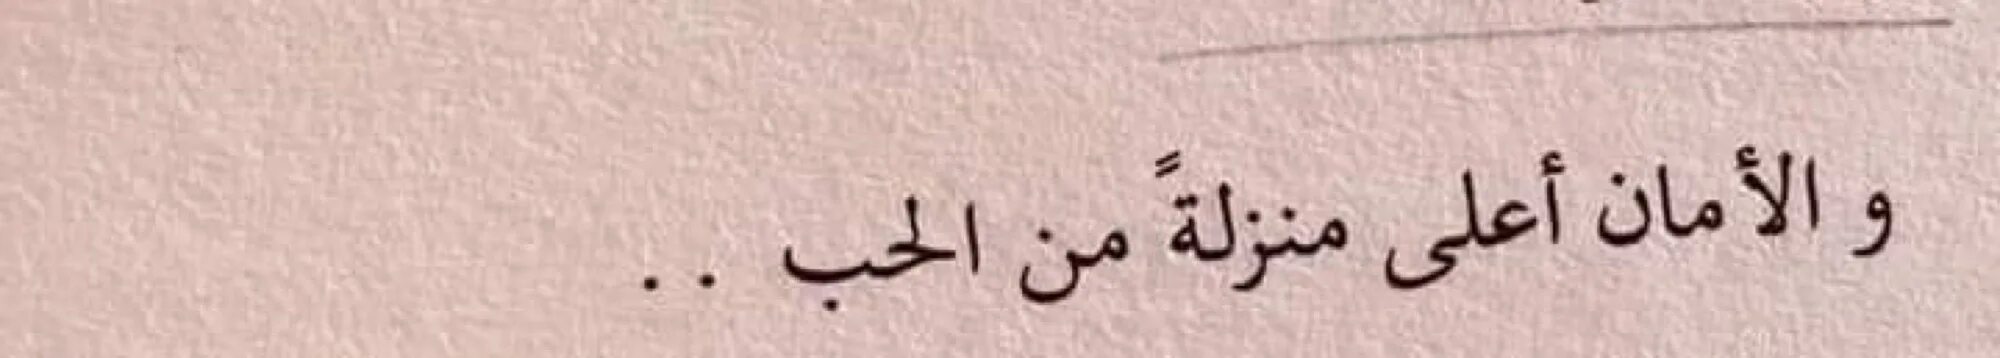 و الأمان أعلى منزلةً من الحب . .